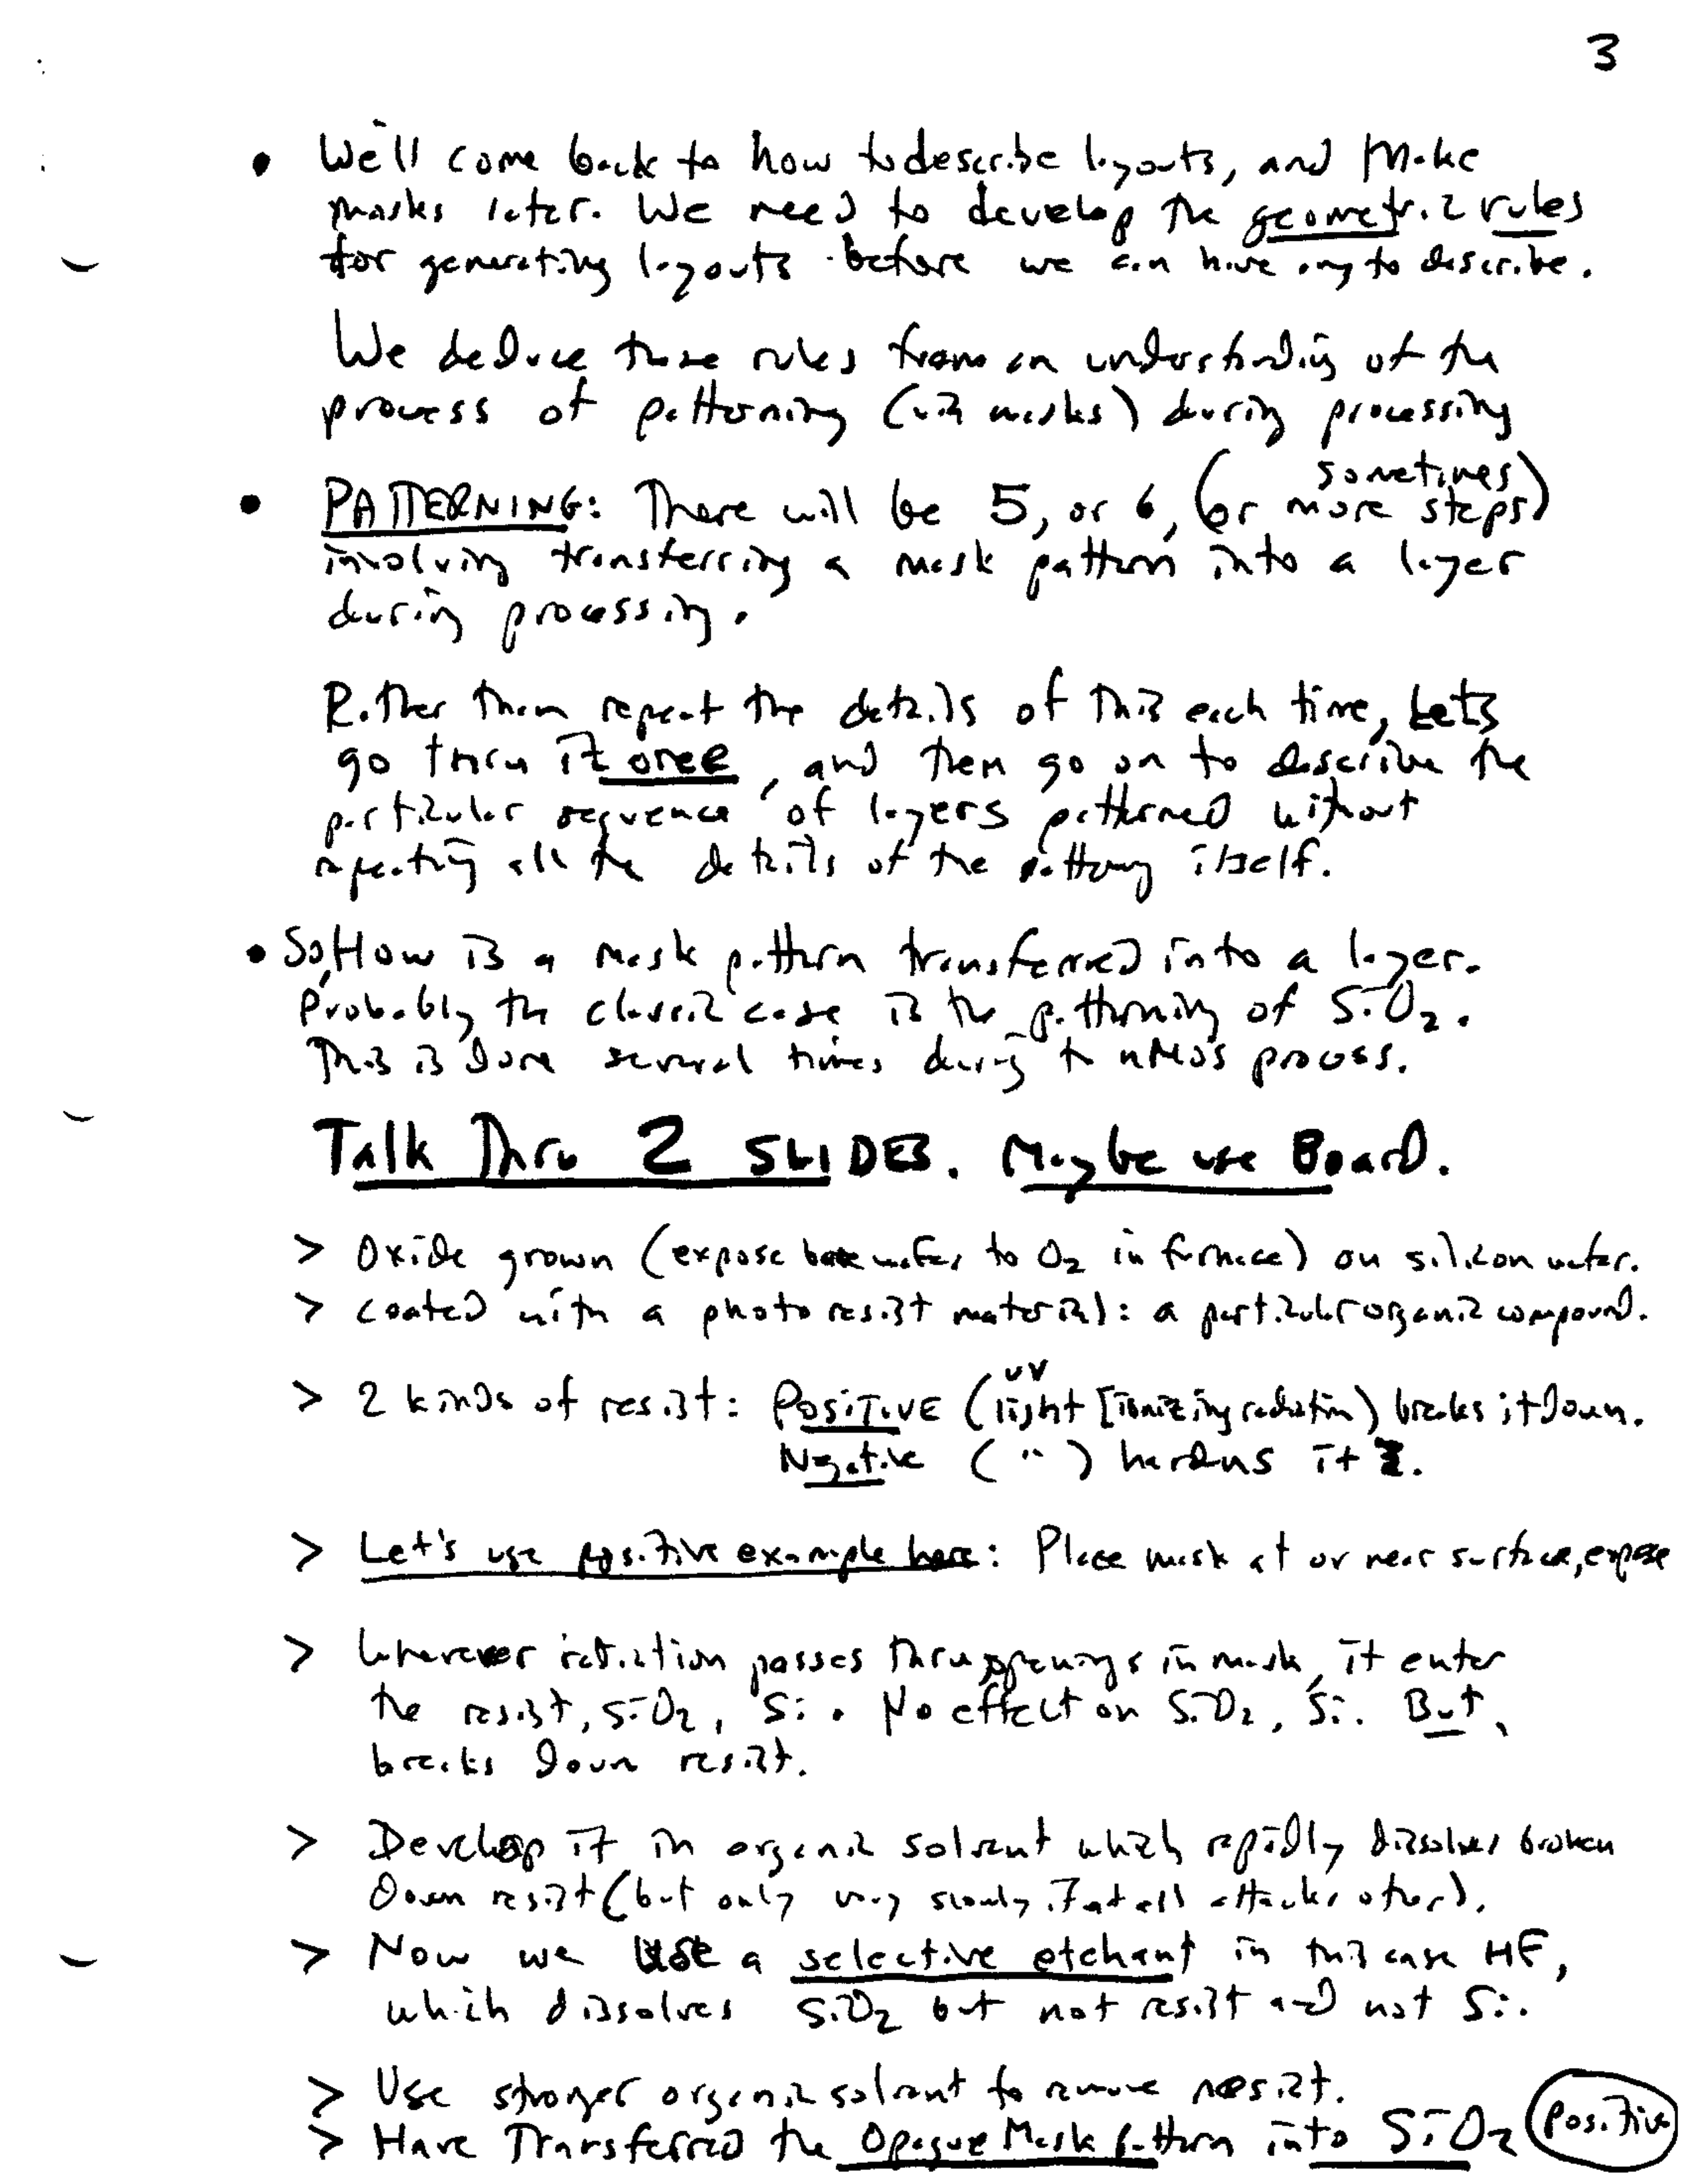 3
• We'll come back to how to describe layouts, and make
masks later. We need to develop the geometric rules
for generating layouts before we can have any to describe.
We deduce these rules from an understanding of the
process of patterning (via masks) during processing
sometimes
• PATTERNING: There will be 5, or 6, (or more steps)
involving transferring a mask pattern into a layer
during processing.
Rather than repeat the details of this each time, Lets
go thru it once, and then go on to describe the
particular sequence of layers patterned without
repeating all the details of the patterning itself.
• So, How is a mask pattern transferred into a layer.
Probably the classic case is the patterning of SiO2.
This is done several times during the nMOS process.
Talk Thru 2 SLIDES. Maybe use Board.
> Oxide grown (expose bare wafer to O2 in furnace) on silicon wafer.
> coated with a photoresist material: a particular organic compound.
uv
> 2 kinds of resist: POSITIVE (light [ionizing radiation) breaks it down.
Negative ( " ) hardens it.
> Let's use positive example here: Place mask at or near surface, expose
> Wherever radiation passes thru openings in mask, it enter
the resist, SiO2, Si. No effect on SiO2, Si. But,
breaks down resist.
> Develop it in organic solvent which rapidly dissolves broken
Down resist (but only very slowly if at all attacks other).
> Now we use a selective etchant in this case HF,
which dissolves SiO2 but not resist and not Si.
> Use stronger organic solvent to remove resist.
> Have Transferred the Opaque Mask pattern into SiO2 (positive)